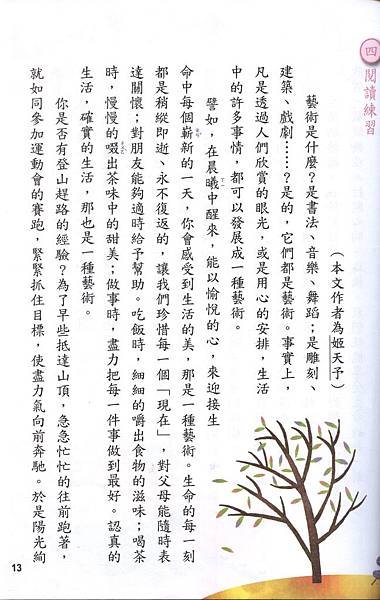 四 閱讀練習
（本文作者為姬天予）
藝術是什麼？是書法、音樂、舞蹈；是雕刻、
建築、戲劇……？是的，它們都是藝術。事實上，
凡是透過人們欣賞的眼光，或是用心的安排，生活
中的許多事情，都可以發展成一種藝術。
譬如，在晨曦中醒來，能以愉悅的心，來迎接生
命中每個嶄新的一天，你會感受到生活的美，那是一種藝術。生命的每一刻
都是稍縱即逝、永不復返的，讓我們珍惜每一個「現在」，對父母能隨時表
達關懷；對朋友能夠適時給予幫助。吃飯時，細細的嚼出食物的滋味；喝茶
時，慢慢的啜出茶味中的甜美；做事時，盡力把每一件事做到最好。認真的
生活，確實的生活，那也是一種藝術。
你是否有登山趕路的經驗？為了早些抵達山頂，急急忙忙的往前跑著，
就如同參加運動會的賽跑，緊緊抓住目標，使盡力氣向前奔馳。於是陽光絢
13